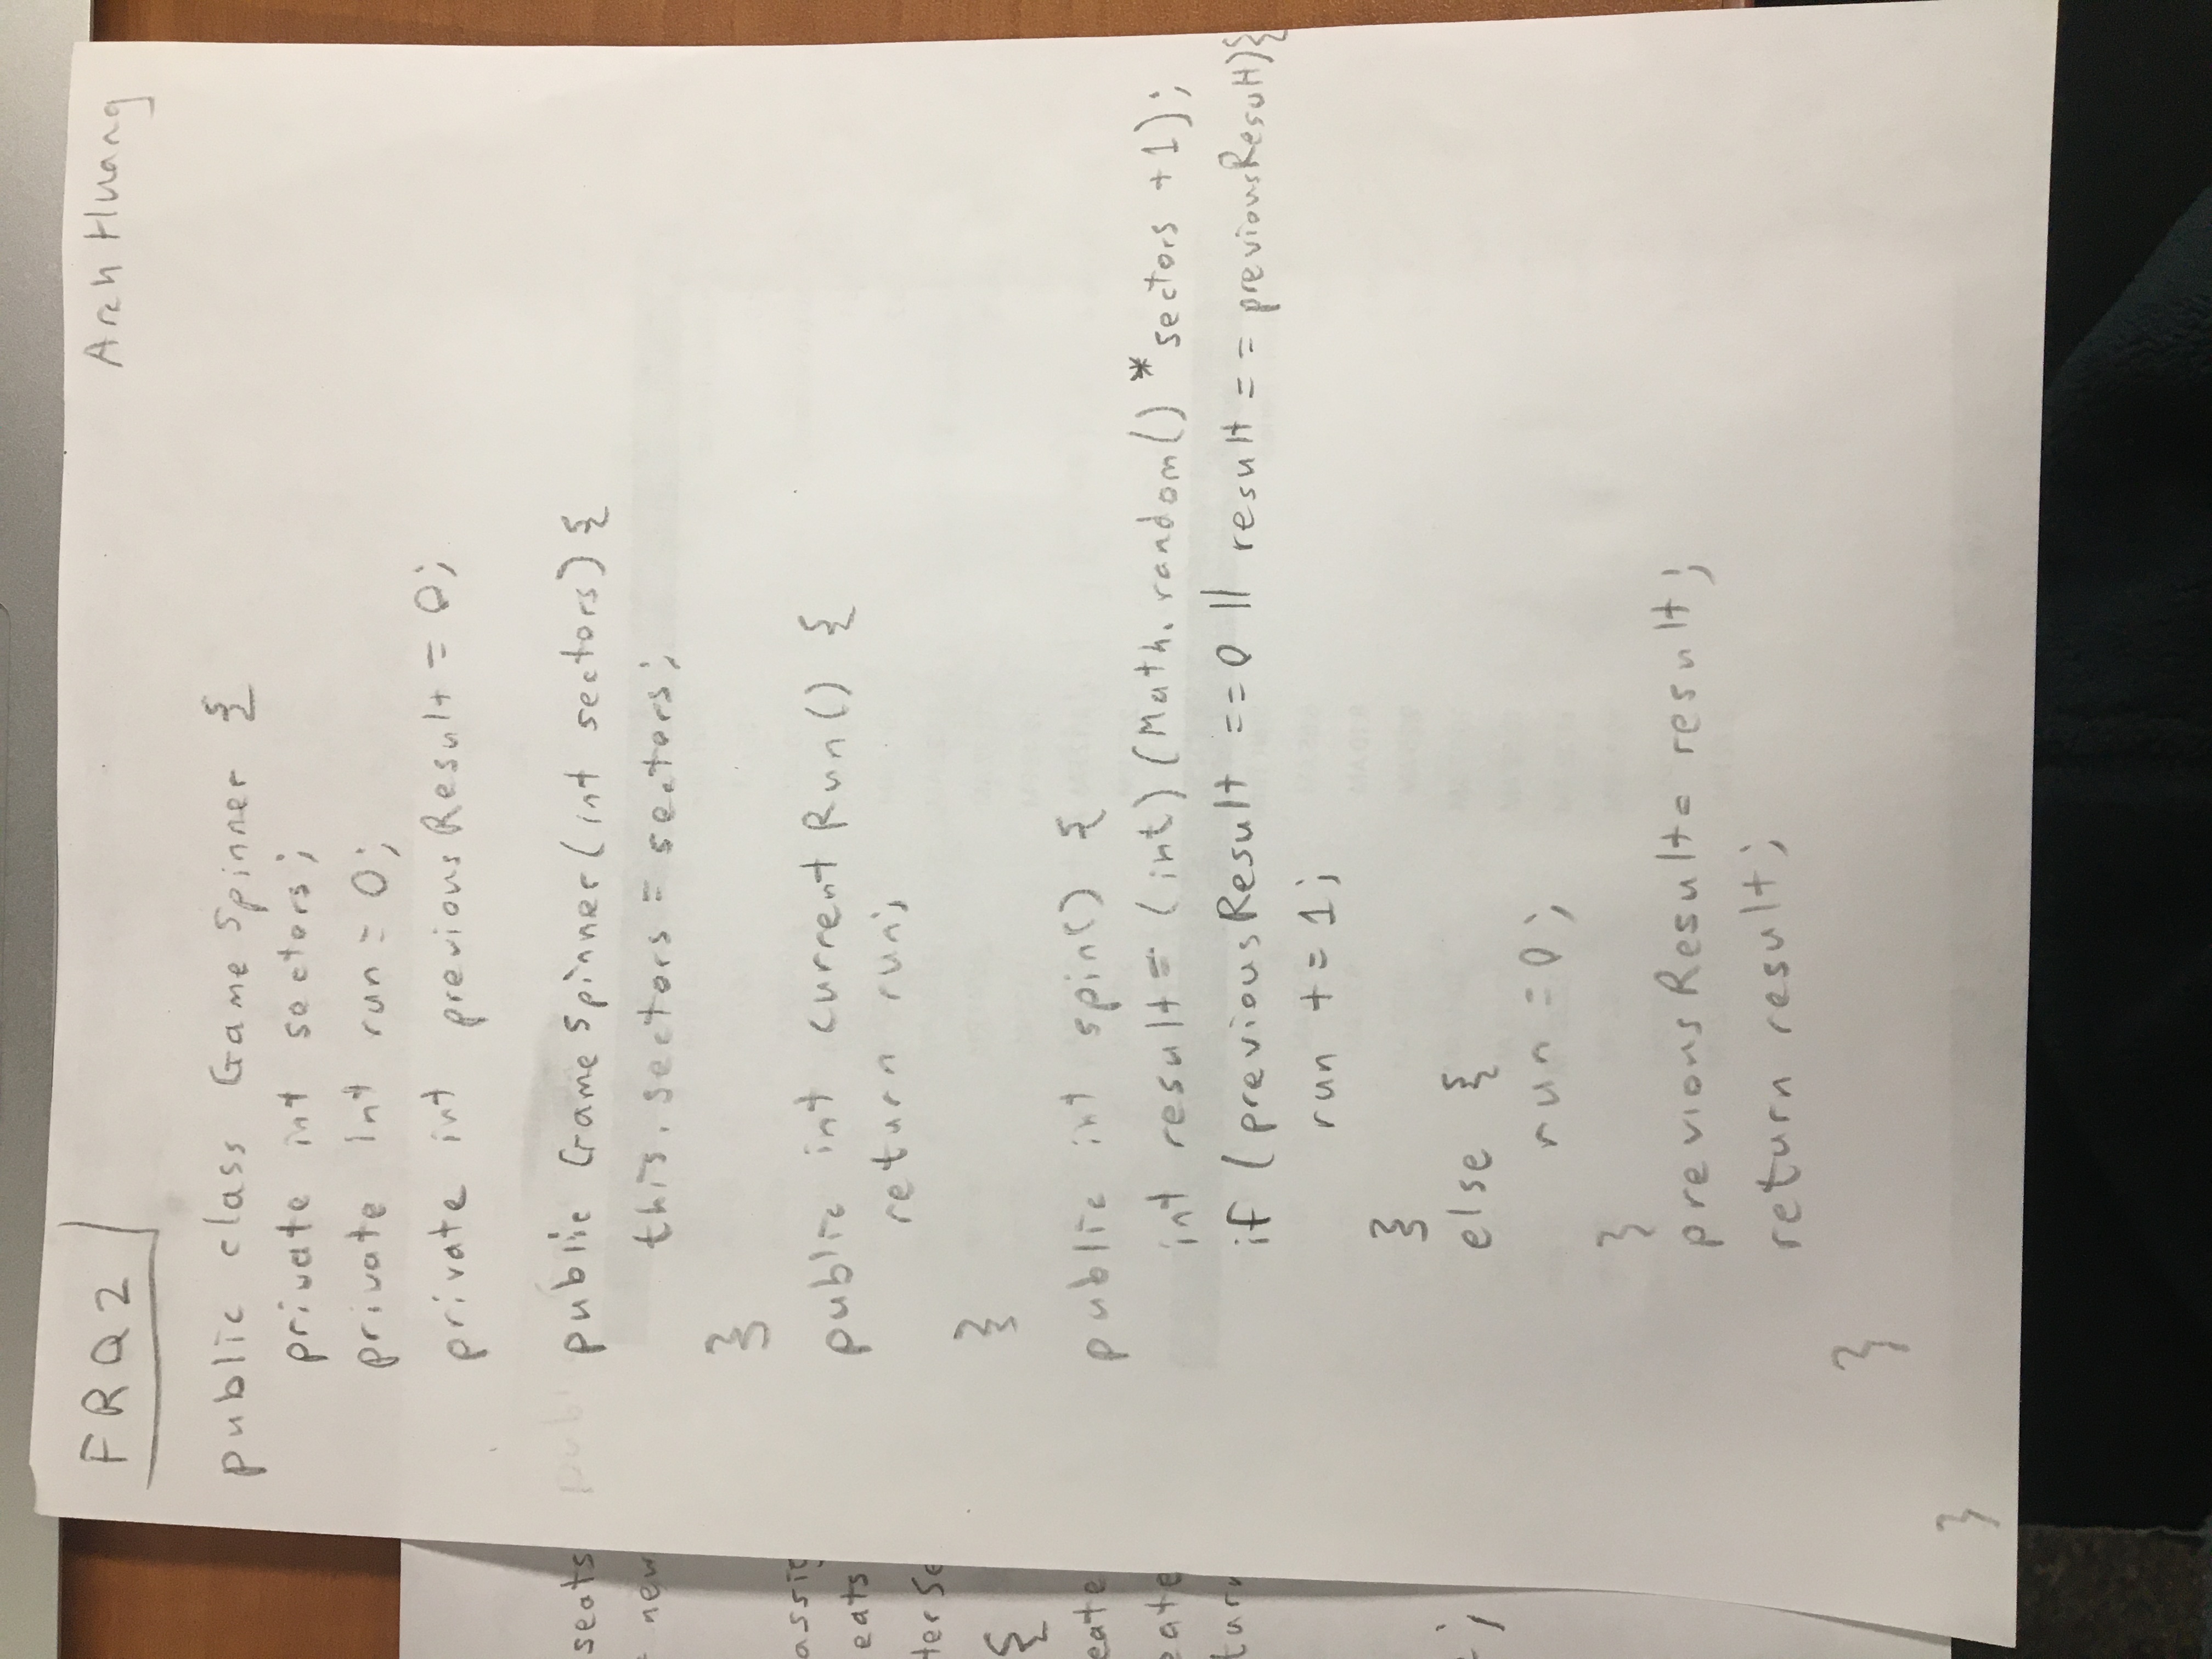 FRQ2
Arch Huang
public class GameSpinner {
private int sectors;
private int run = 0;
private int previousResult = 0;
public GameSpinner(int sectors) {
this.sectors = sectors;
}
public int currentRun() {
return run;
}
public int spin() {
int result = (int) (Math.random() * sectors + 1);
if (previousResult == 0 || result == previousResult){
run += 1;
}
else {
run = 0;
}
previousResult = result;
return result;
}
}
seats
= new
assig
eats
ter Se
{
eate
eate
turn